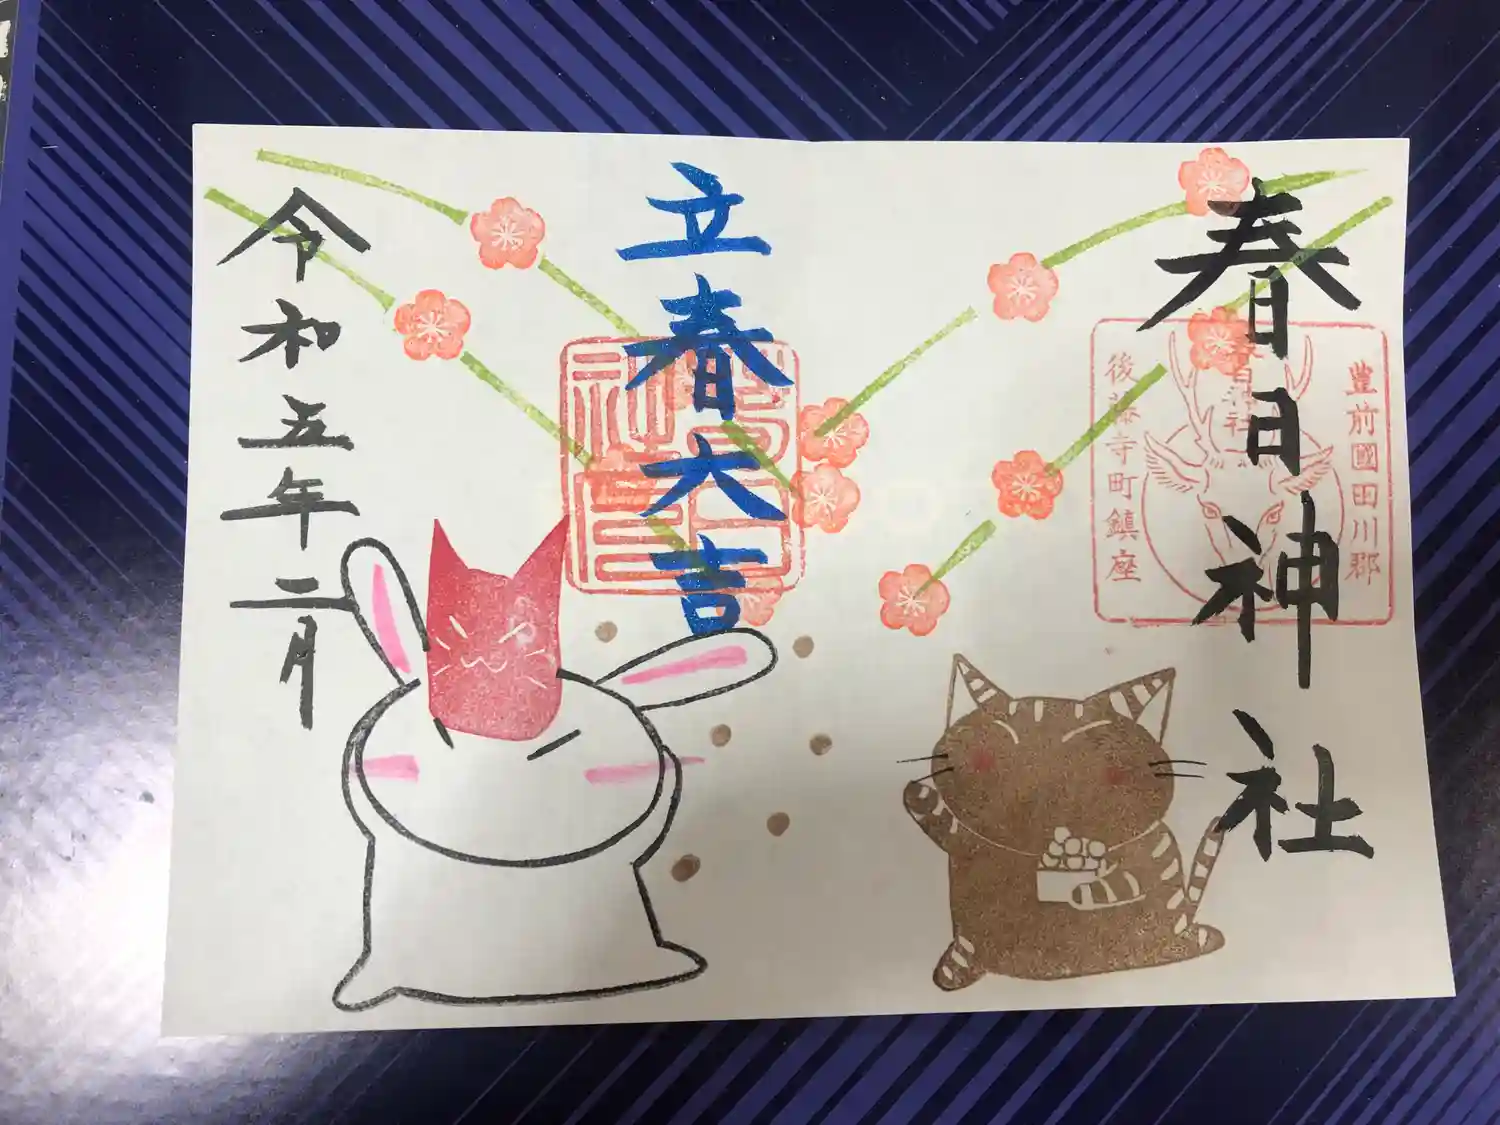 春日神社
豊前國田川郡
春日神社
後藤寺町鎮座
立春大吉
令和五年二月